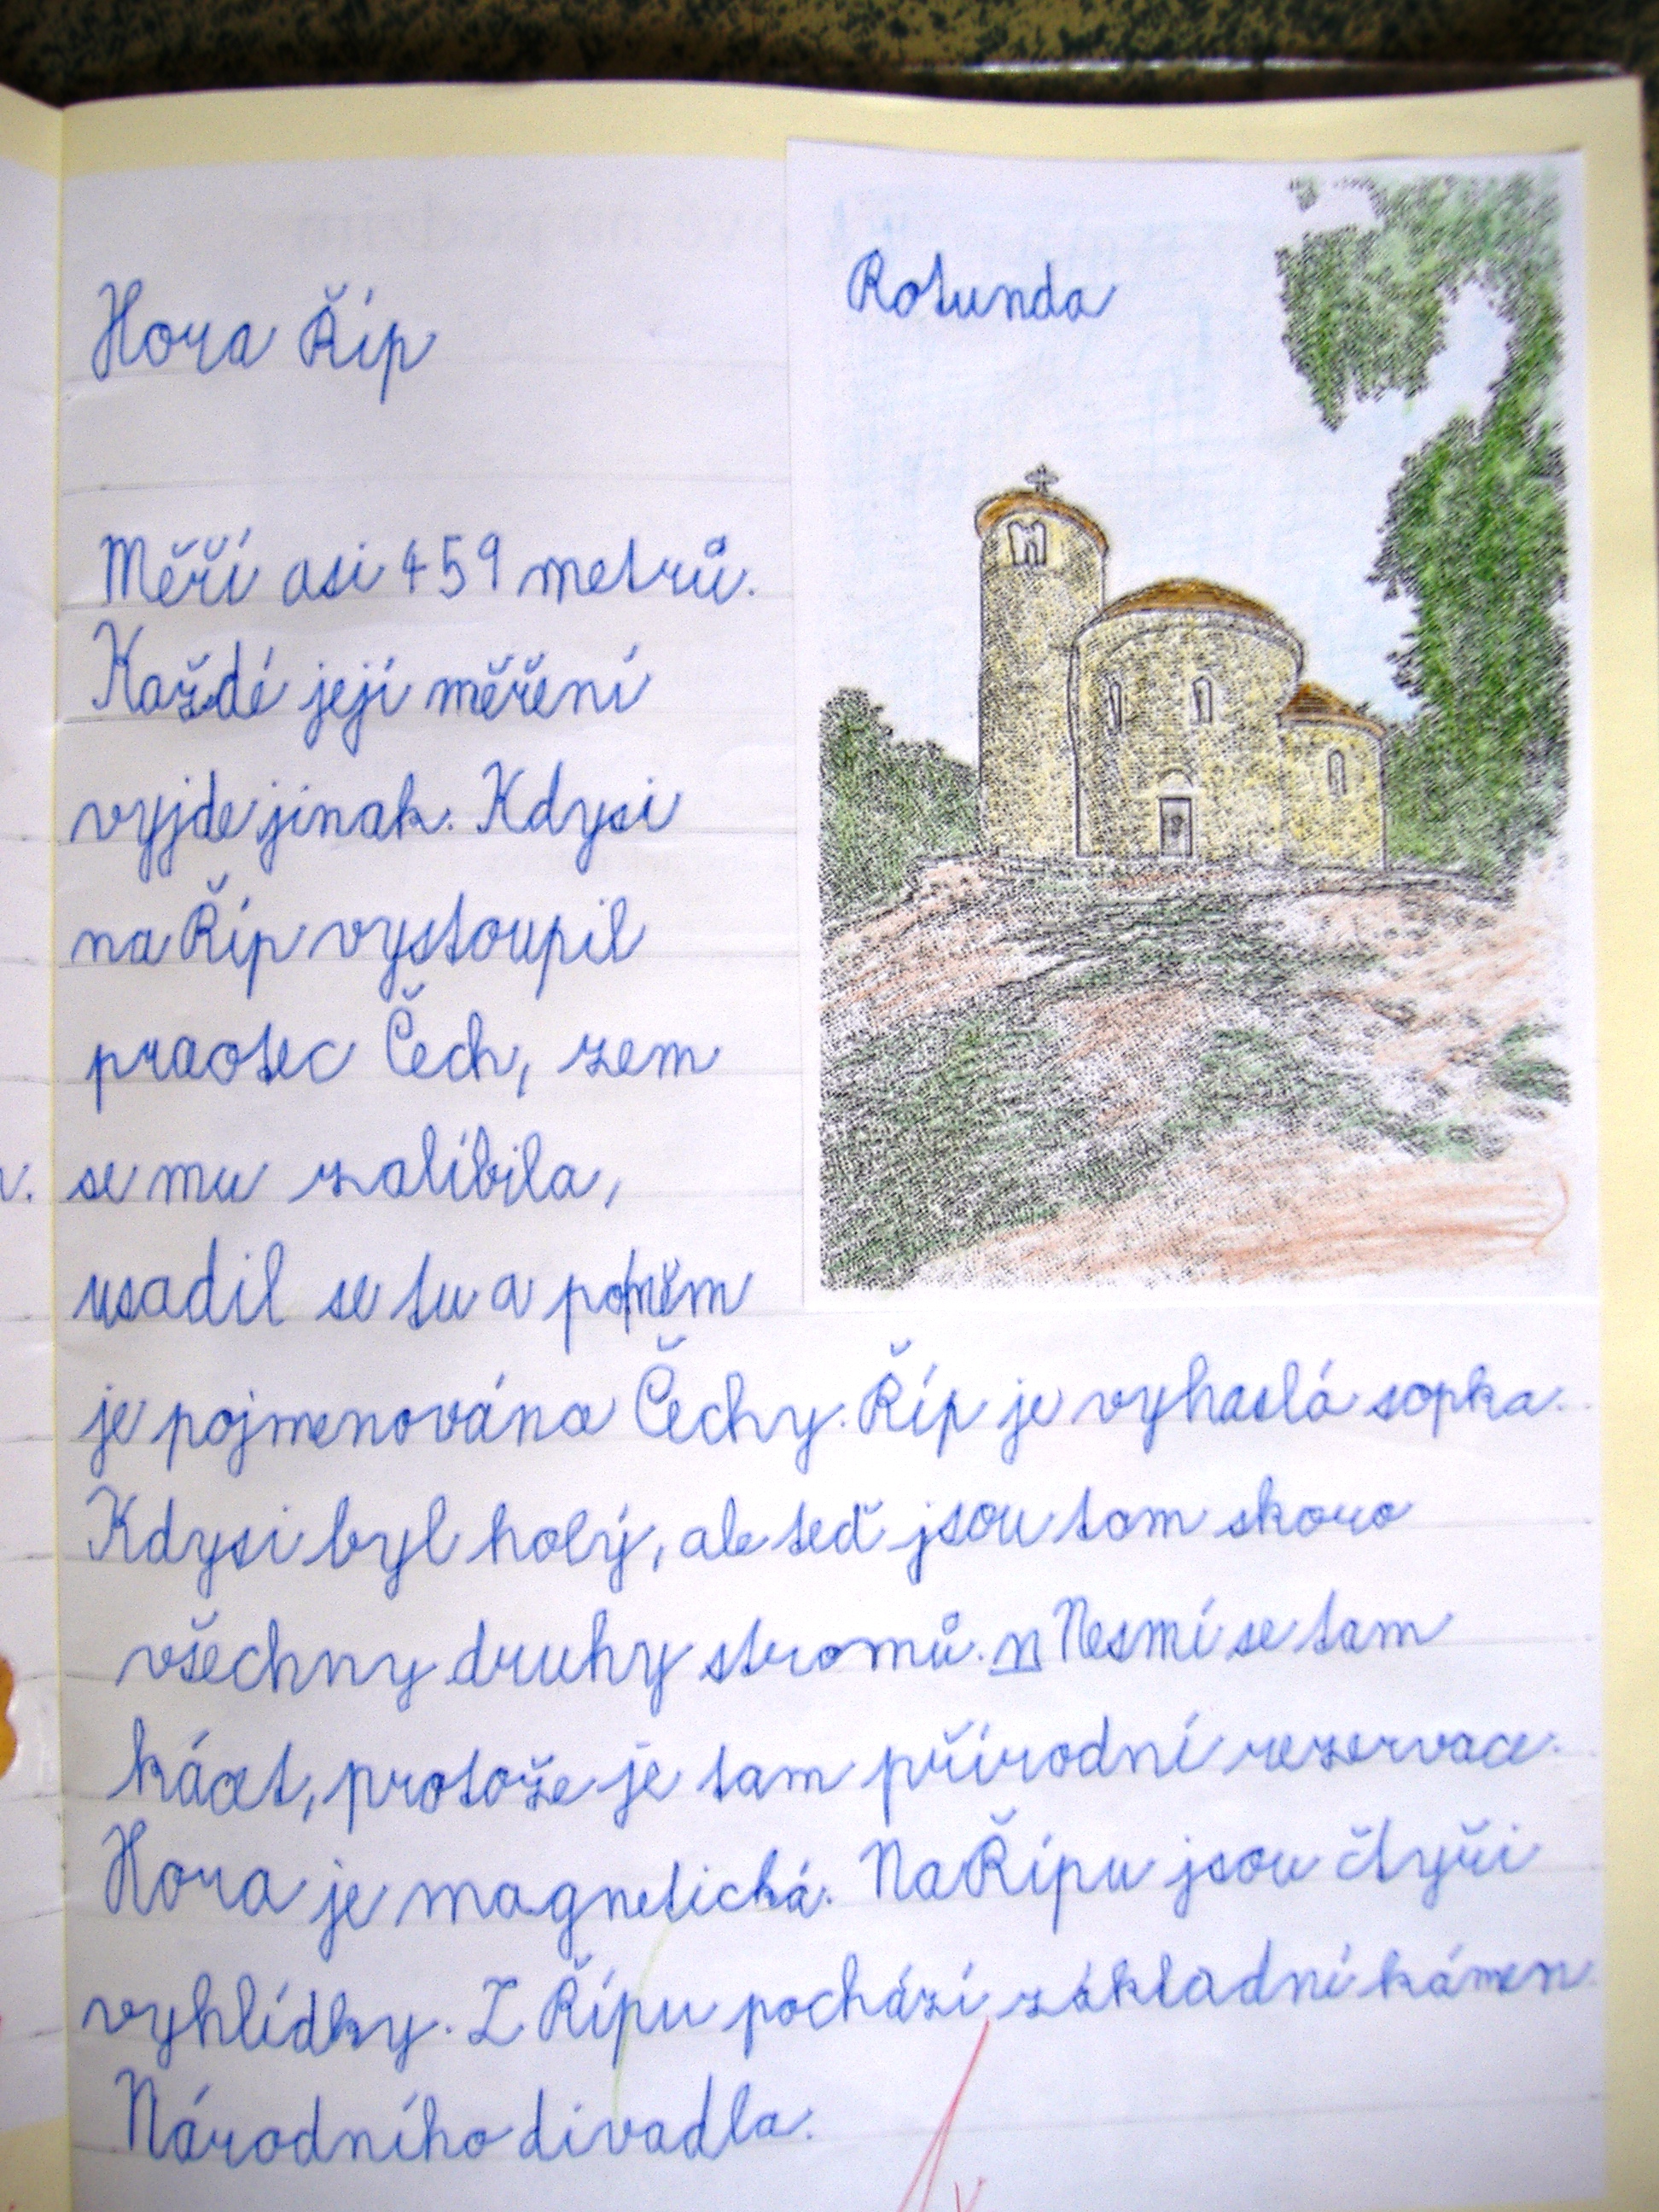 Hora Říp
Rotunda
Měří asi 459 metrů.
Každé její měření
vyjde jinak. Kdysi
na Říp vystoupil
praotec Čech, zem
se mu zalíbila,
usadil se tu a po něm
je pojmenována Čechy. Říp je vyhaslá sopka.
Kdysi byl holý, ale teď jsou tam skoro
všechny druhy stromů. n Nesmí se tam
kácet, protože je tam přírodní rezervace.
Hora je magnetická. Na Řípu jsou čtyři
vyhlídky. Z Řípu pochází základní kámen
Národního divadla.